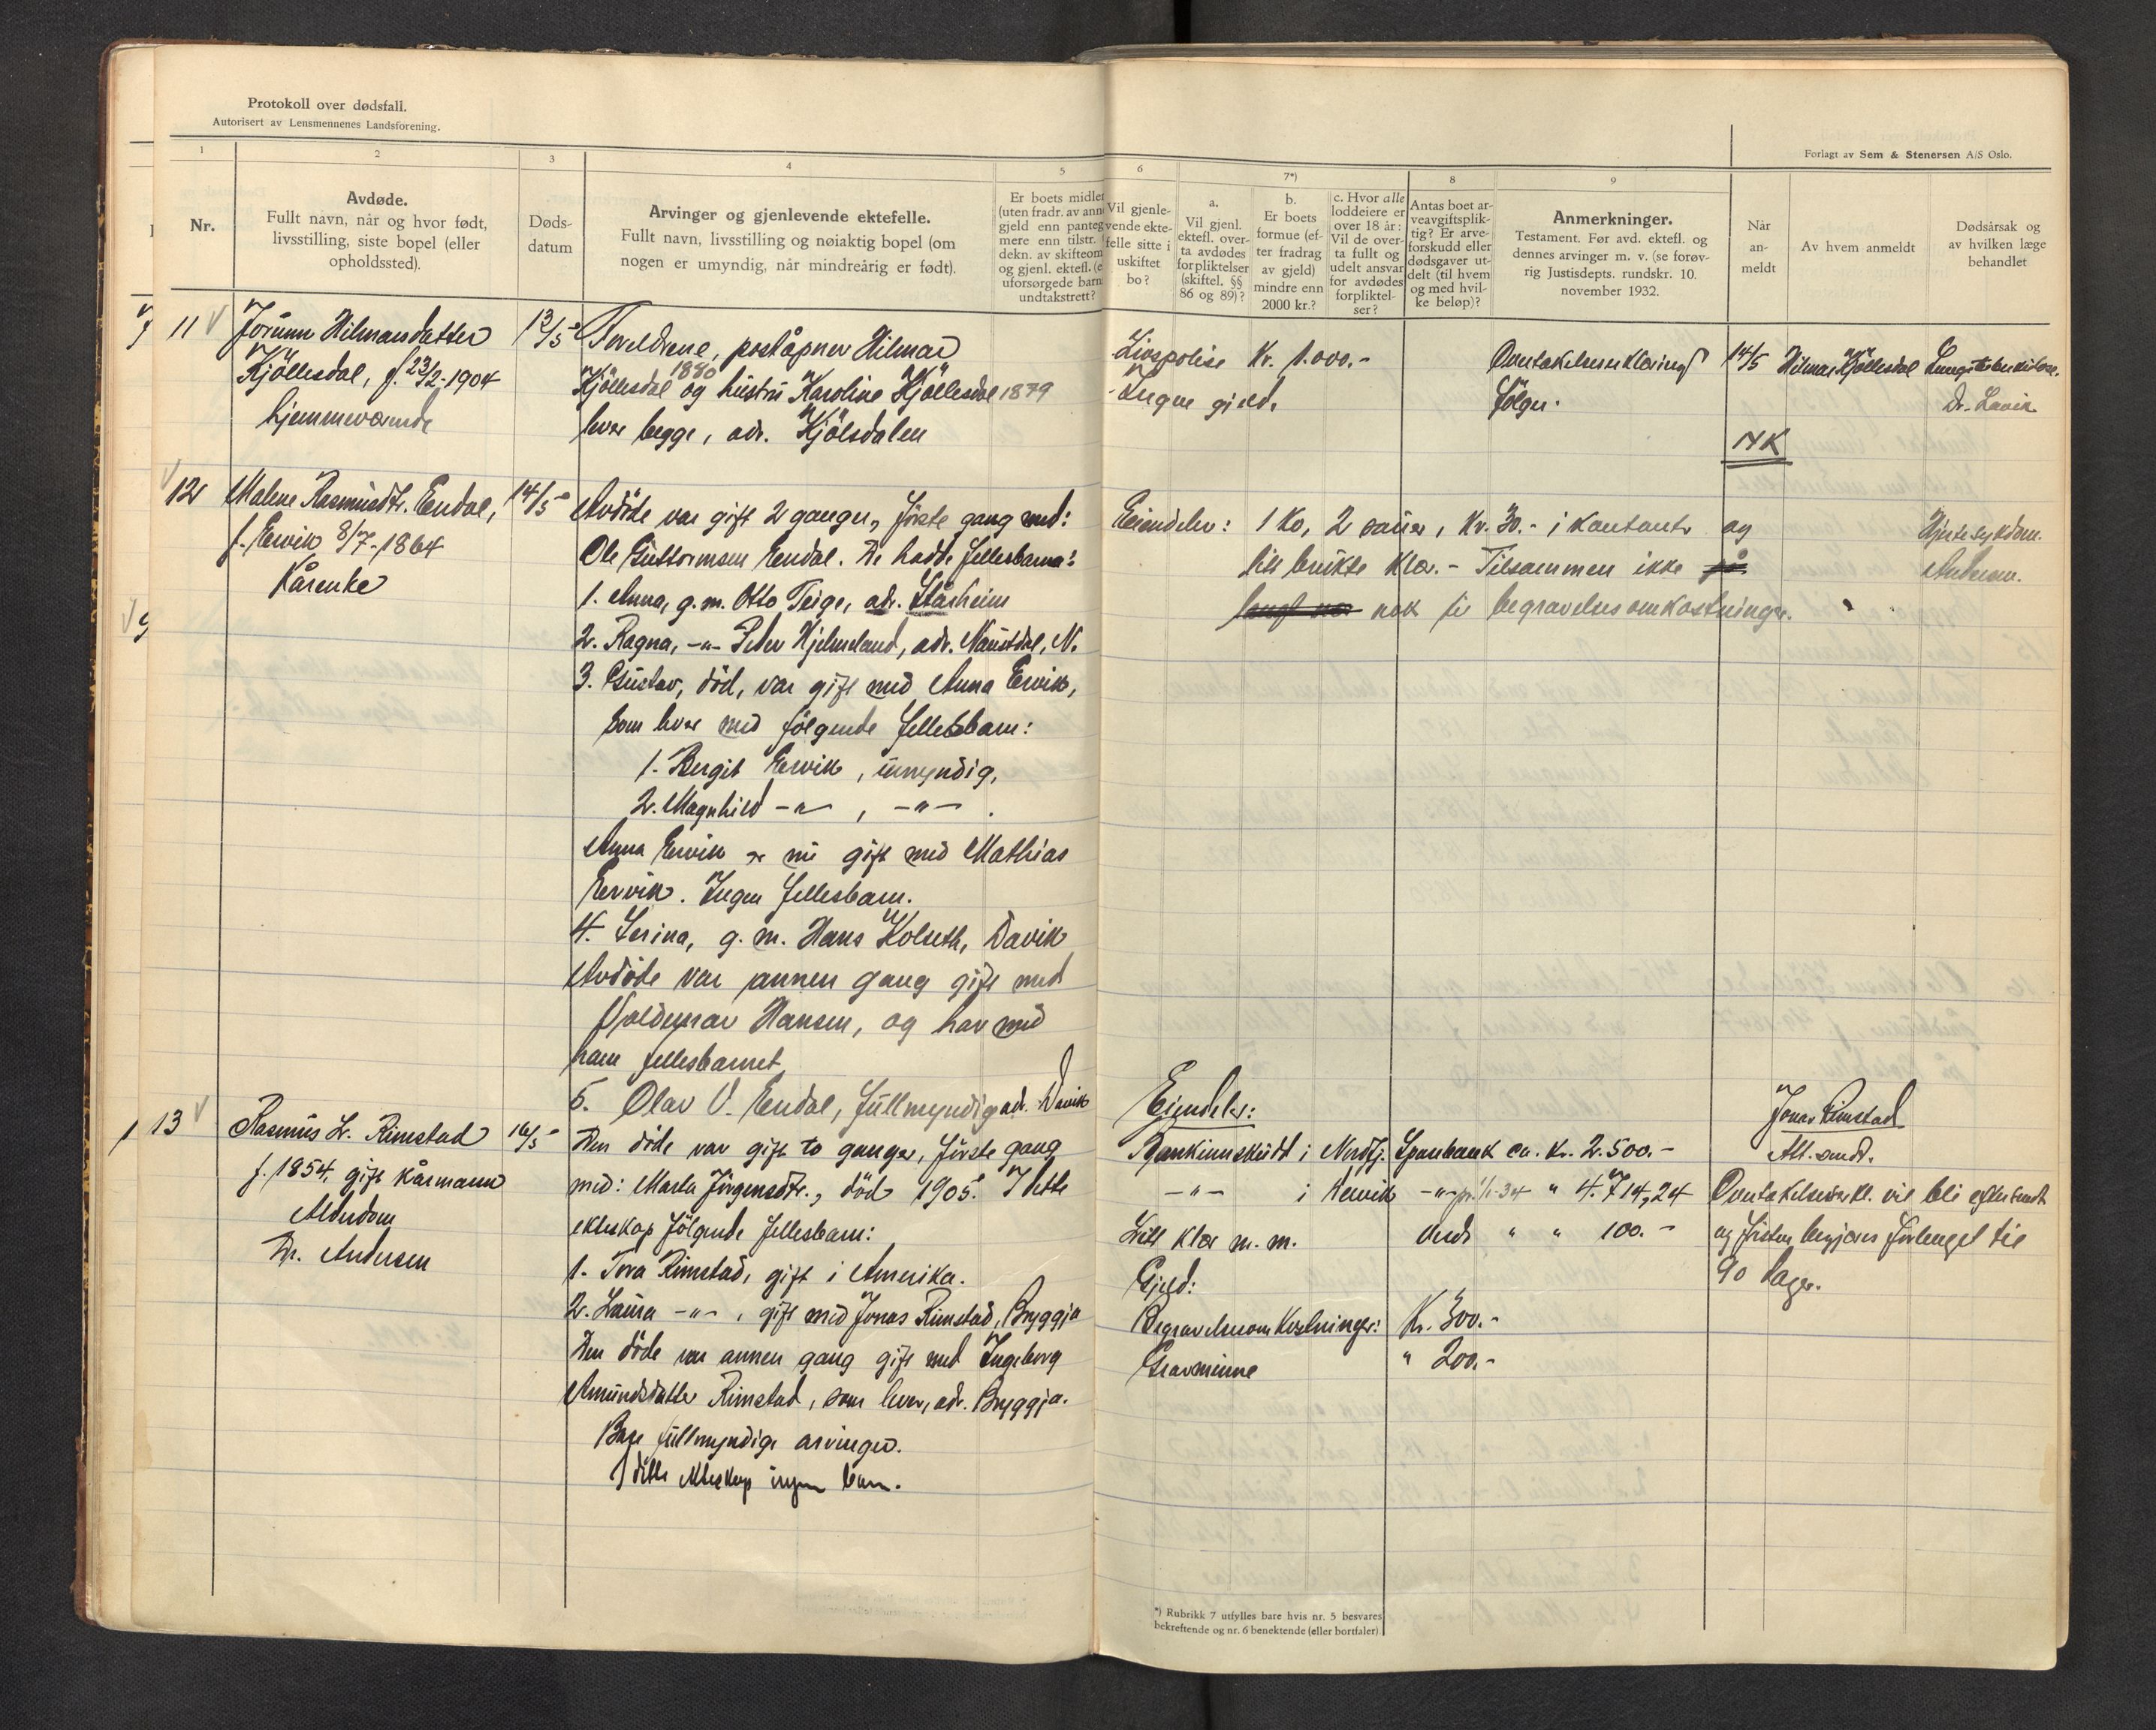 Protokoll over dødsfall.
Autorisert av Lensmennenes Landsforening.
Forlagt av Sem & Stenersen A/S Oslo.
1 2 3 4 5 6 7*) 8 9
Nr.
Avdøde.
Fullt navn, når og hvor født,
livsstilling, siste bopel (eller
opholdssted).
Døds-
datum
Arvinger og gjenlevende ektefelle.
Fullt navn, livsstilling og nøiaktig bopel (om
nogen er umyndig, når mindreårig er født).
Er boets midler
(uten fradr. av ann
gjeld enn panteg
mere enn tilstr.
dekn. av skifteom
og gjenl. ektefl. (e
uforsørgede barn
undtakstrett?
Vil gjenle-
vende ekte-
felle sitte i
uskiftet
bo?
a.
Vil gjenl.
ektefl. over-
ta avdødes
forpliktelser
(skiftel. §§
86 og 89)?
b.
Er boets
formue (ef-
ter fradrag
av gjeld)
mindre enn
2000 kr.?
c. Hvor alle
loddeiere er
over 18 år:
Vil de over-
ta fullt og
udelt ansvar
for avdødes
forpliktel-
ser?
Antas boet ar-
veavgiftsplik-
tig? Er arve-
forskudd eller
dødsgaver ut-
delt (til hvem
og med hvil-
ke beløp)?
Anmerkninger.
Testament. Før avd. ektefl. og
dennes arvinger m. v. (se forøv-
rig Justisdepts. rundskr. 10.
november 1932.
Når
an-
meldt
Av hvem anmeldt
Dødsårsak og
av hvilken læge
behandlet
11
Jorunn Hilmarsdatter
Kjöllesdal, f. 23/2-1904
hjemmeværende
13/5
Foreldrene, poståpner Hilmar
Kjöllesdal 1880 og hustru Karoline Kjöllesdal 1879
lever begge, adr. Kjölsdalen
Livspolise Kr. 1.000.-
Ingen gjeld.
Overtakelseserklæring
fölger.
14/5
Hilmar Kjöllesdal
Lungetuberkulose.
Dr. Lavik
NK
12
Malene Rasmusdtr. Endal,
f. Ervik 8/7-1864
Kårenke
14/5
Avdöde var gift 2 ganger, förste gang med:
Ole Guttormsen Endal. De hadde fellesbarna:
1. Anna, g.m. Otto Teige, adr. Stårheim
2. Ragna, -"- Peder Hjelmeland, adr. Naustdal, N.
3. Gustav, död, var gift med Anna Ervik,
som lever med fölgende fellesbarn:
1. Bergit Ervik, umyndig,
2. Magnhild -"- , -"- .
Anna Ervik er nu gift med Mathias
Ervik. Ingen fellesbarn.
4. Serina, g. m. Hans Kolseth, Davik
Avdöde var annen gang gift med
Valdemar Hansen, og har med
ham fellesbarnet,
5. Olav V. Endal, fullmyndig adr. Davik
Eiendeler: 1 Ko, 2 sauer, Kr. 30.- i kontanter og
litt brukte klær.- Tilsammen ikke
nok til begravelsesomkostninger.
Hjertesykdom.
Andersen.
13
Rasmus L. Rimstad
f. 1854, gift kårmann
Alderdom
Dr. Andersen
16/5
Den döde var gift to ganger, förste gang
med: Marta Jörgensdtr., död 1905. I dette
ekteskap fölgende fellesbarn:
1. Tora Rimstad, gift i Amerika.
2. Laura -"- , gift med Jonas Rimstad, Bryggja
Den döde var annen gang gift med Ingeborg
Amundsdatter Rimstad, som lever, adr. Bryggja.
Bare fullmyndige arvinger.
I dette ekteskap ingen barn.
Eiendeler:
Bankinnskudd i Nordfj. Sparebank ca. Kr. 2.500.-
-"- i Hervik -"- pr. 1/1-34 " 4.714,24
Litt klær m. m. verdi " " 100.-
Gjeld:
Begravelsesomkostninger: Kr. 300.-
Gravminne " 200.-
Jonas Rimstad
Att. sendt.
Overtakelseserkl. vil bli eftersendt
og fristen begjæres forlenget til
90 dager.
*) Rubrikk 7 utfylles bare hvis nr. 5 besvares
bekreftende og nr. 6 benektende (eller bortfaler).